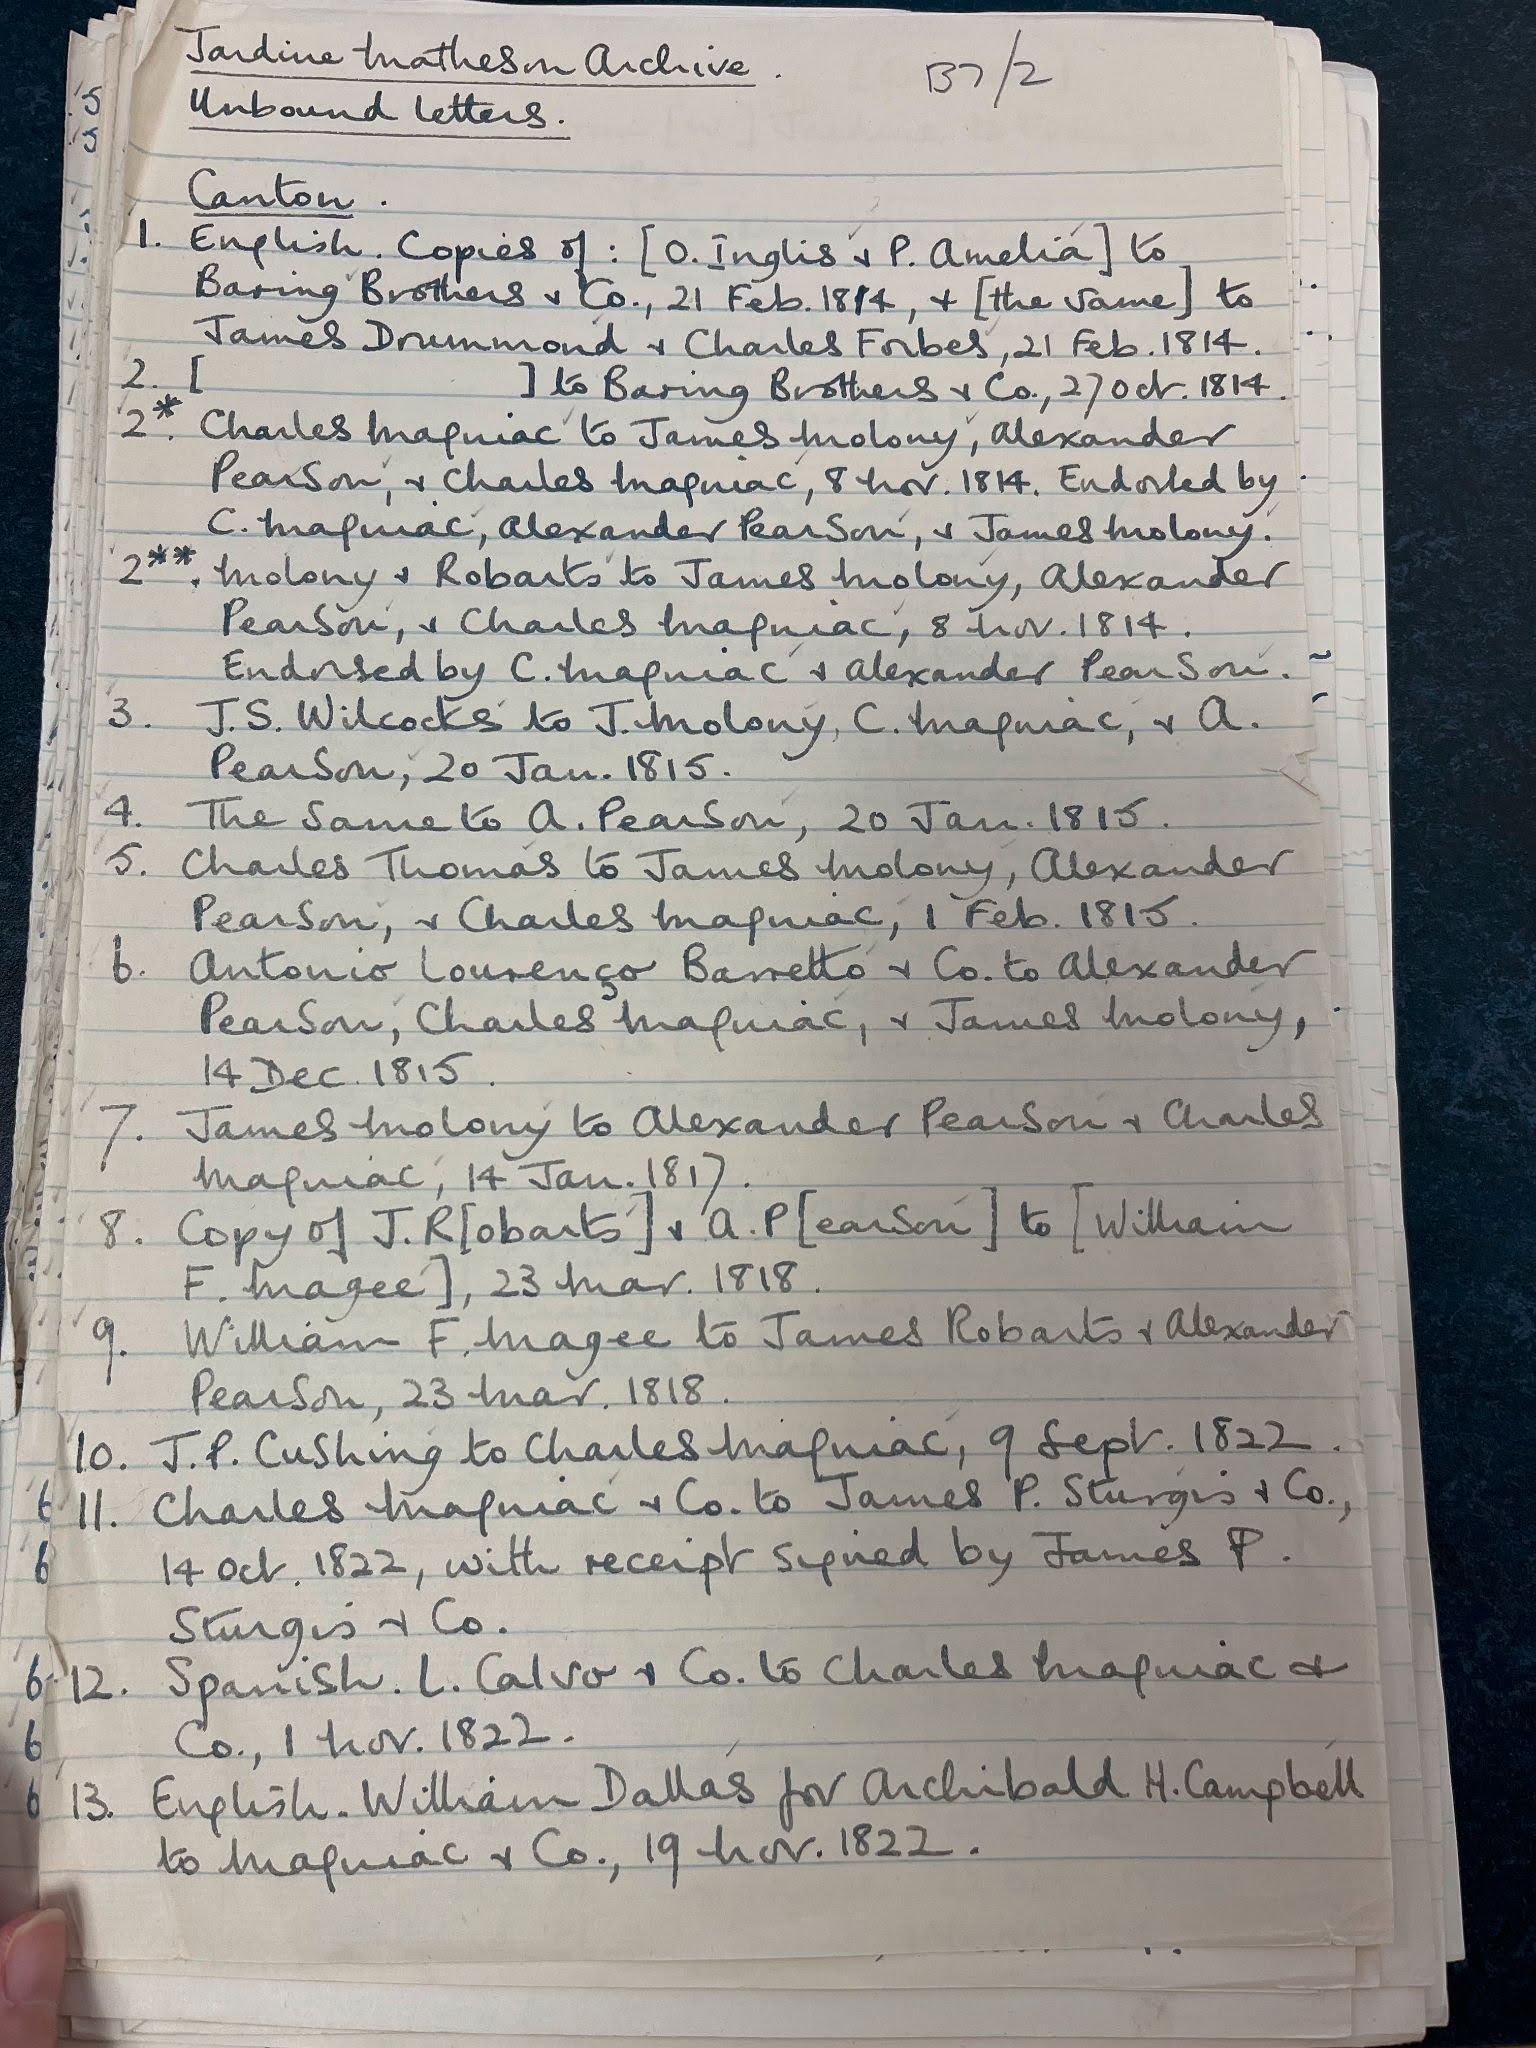 Jardine Matheson Archive. B7/2
Unbound letters.
Canton.
1. English. Copies of: [O. Inglis & P. Amelia] to
Baring Brothers & Co., 21 Feb. 1814, & [the same] to
James Drummond & Charles Forbes, 21 Feb. 1814.
2. [ ] to Baring Brothers & Co., 27 Oct. 1814.
2*. Charles Magniac to James Molony, Alexander
Pearson, & Charles Magniac, 8 Nov. 1814. Endorsed by
C. Magniac, Alexander Pearson, & James Molony.
2**. Molony & Robarts to James Molony, Alexander
Pearson, & Charles Magniac, 8 Nov. 1814.
Endorsed by C. Magniac & Alexander Pearson.
3. J.S. Wilcocks to J. Molony, C. Magniac, & A.
Pearson, 20 Jan. 1815.
4. The same to A. Pearson, 20 Jan. 1815.
5. Charles Thomas to James Molony, Alexander
Pearson, & Charles Magniac, 1 Feb. 1815.
6. Antonio Lourenço Barretto & Co. to Alexander
Pearson, Charles Magniac, & James Molony,
14 Dec. 1815.
7. James Molony to Alexander Pearson & Charles
Magniac, 14 Jan. 1817.
8. Copy of J. R[obarts] & A. P[earson] to [William
F. Magee], 23 Mar. 1818.
9. William F. Magee to James Robarts & Alexander
Pearson, 23 Mar. 1818.
10. J.P. Cushing to Charles Magniac, 9 Sept. 1822.
11. Charles Magniac & Co. to James P. Sturgis & Co.,
14 Oct. 1822, with receipt signed by James P.
Sturgis & Co.
12. Spanish. L. Calvo & Co. to Charles Magniac &
Co., 1 Nov. 1822.
13. English. William Dallas for Archibald H. Campbell
to Magniac & Co., 19 Nov. 1822.